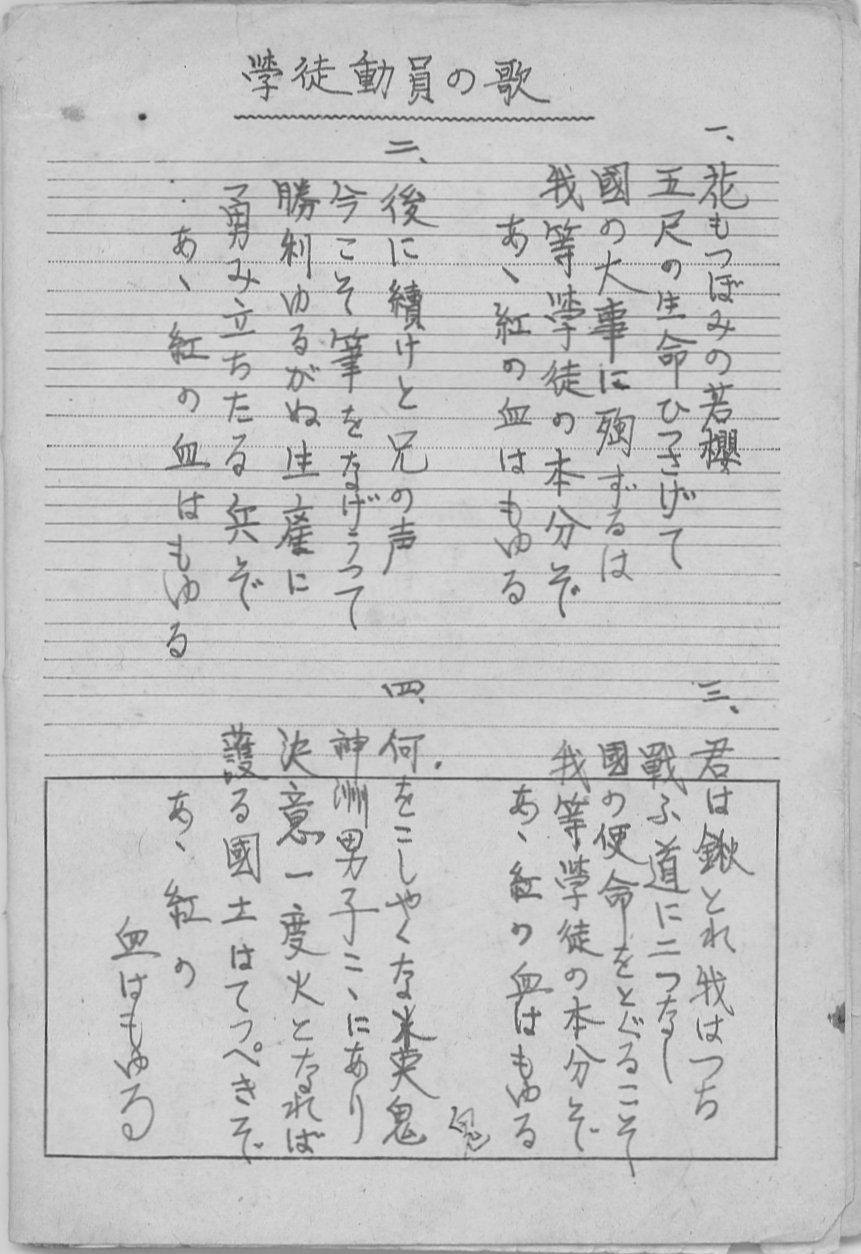 學徒動員の歌
一、花もつぼみの若櫻
五尺の生命ひつさげて
國の大事に殉ずるは
我等學徒の本分ぞ
あゝ紅の血はもゆる
二、後に續けと兄の声
今こそ筆をなげうつて
勝利ゆるがぬ生産に
勇み立ちたる兵ぞ
あゝ紅の血はもゆる
三、君は鍬とれ我はつち
戰ふ道に二つなし
國の使命をとぐるこそ
我等學徒の本分ぞ
あゝ紅の血はもゆる
四、何をこしやくな米英鬼
神洲男子こゝにあり
決意一度火となれば
護る國土はてつぺきぞ
あゝ紅の
血はもゆる